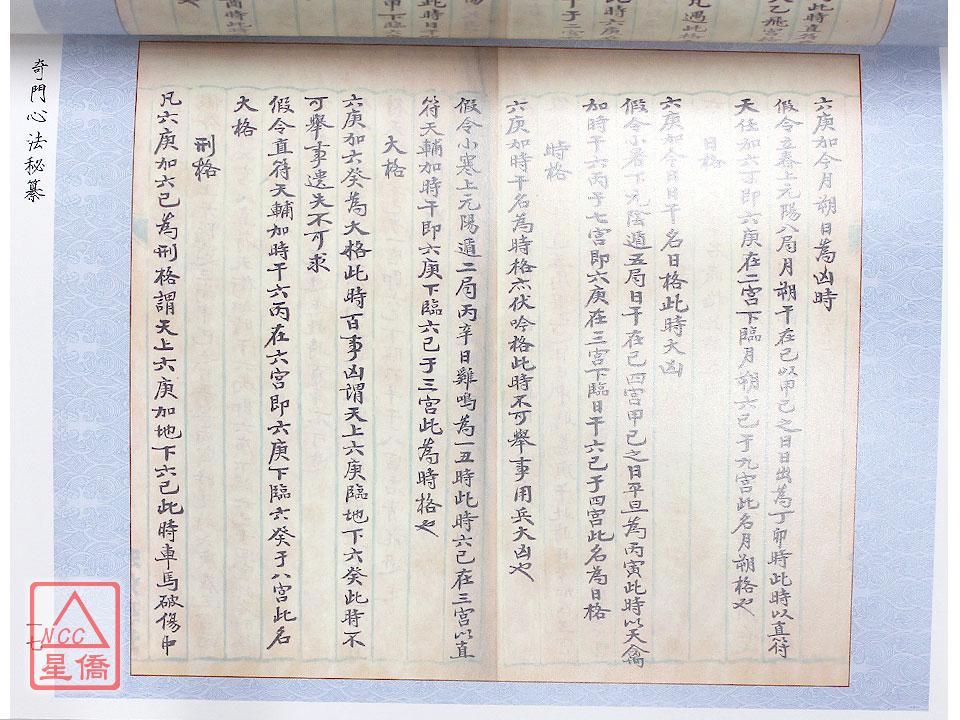 六庚加今月朔日為凶時
假令立春上元陽八局月朔干在己以甲己之日日出為丁卯時此時以直符
天任加六丁即六庚在二宮下臨月朔六己于九宮此名月朔格也
日格
六庚加今日日干名日格此時大凶
假令小暑下元陰遁五局日干在己四宮甲己之日平旦為丙寅此時以天禽
加時干六丙于七宮即六庚在三宮下臨日干六己于四宮此名為日格
時格
六庚加時干名為時格亦伏吟格此時不可舉事用兵大凶也
假令小寒上元陽遁二局丙辛日雞鳴為一丑時此時六己在三宮以直
符天輔加時干即六庚下臨六己于三宮此為時格也
大格
六庚加六癸為大格此時百事凶謂天上六庚臨地下六癸此時不
可舉事遺失不可求
假令直符天輔加時干六丙在六宮即六庚下臨六癸于八宮此名
大格
刑格
凡六庚加六己為刑格謂天上六庚加地下六己此時車馬破傷中
奇門心法秘纂
一七
NCC
星僑